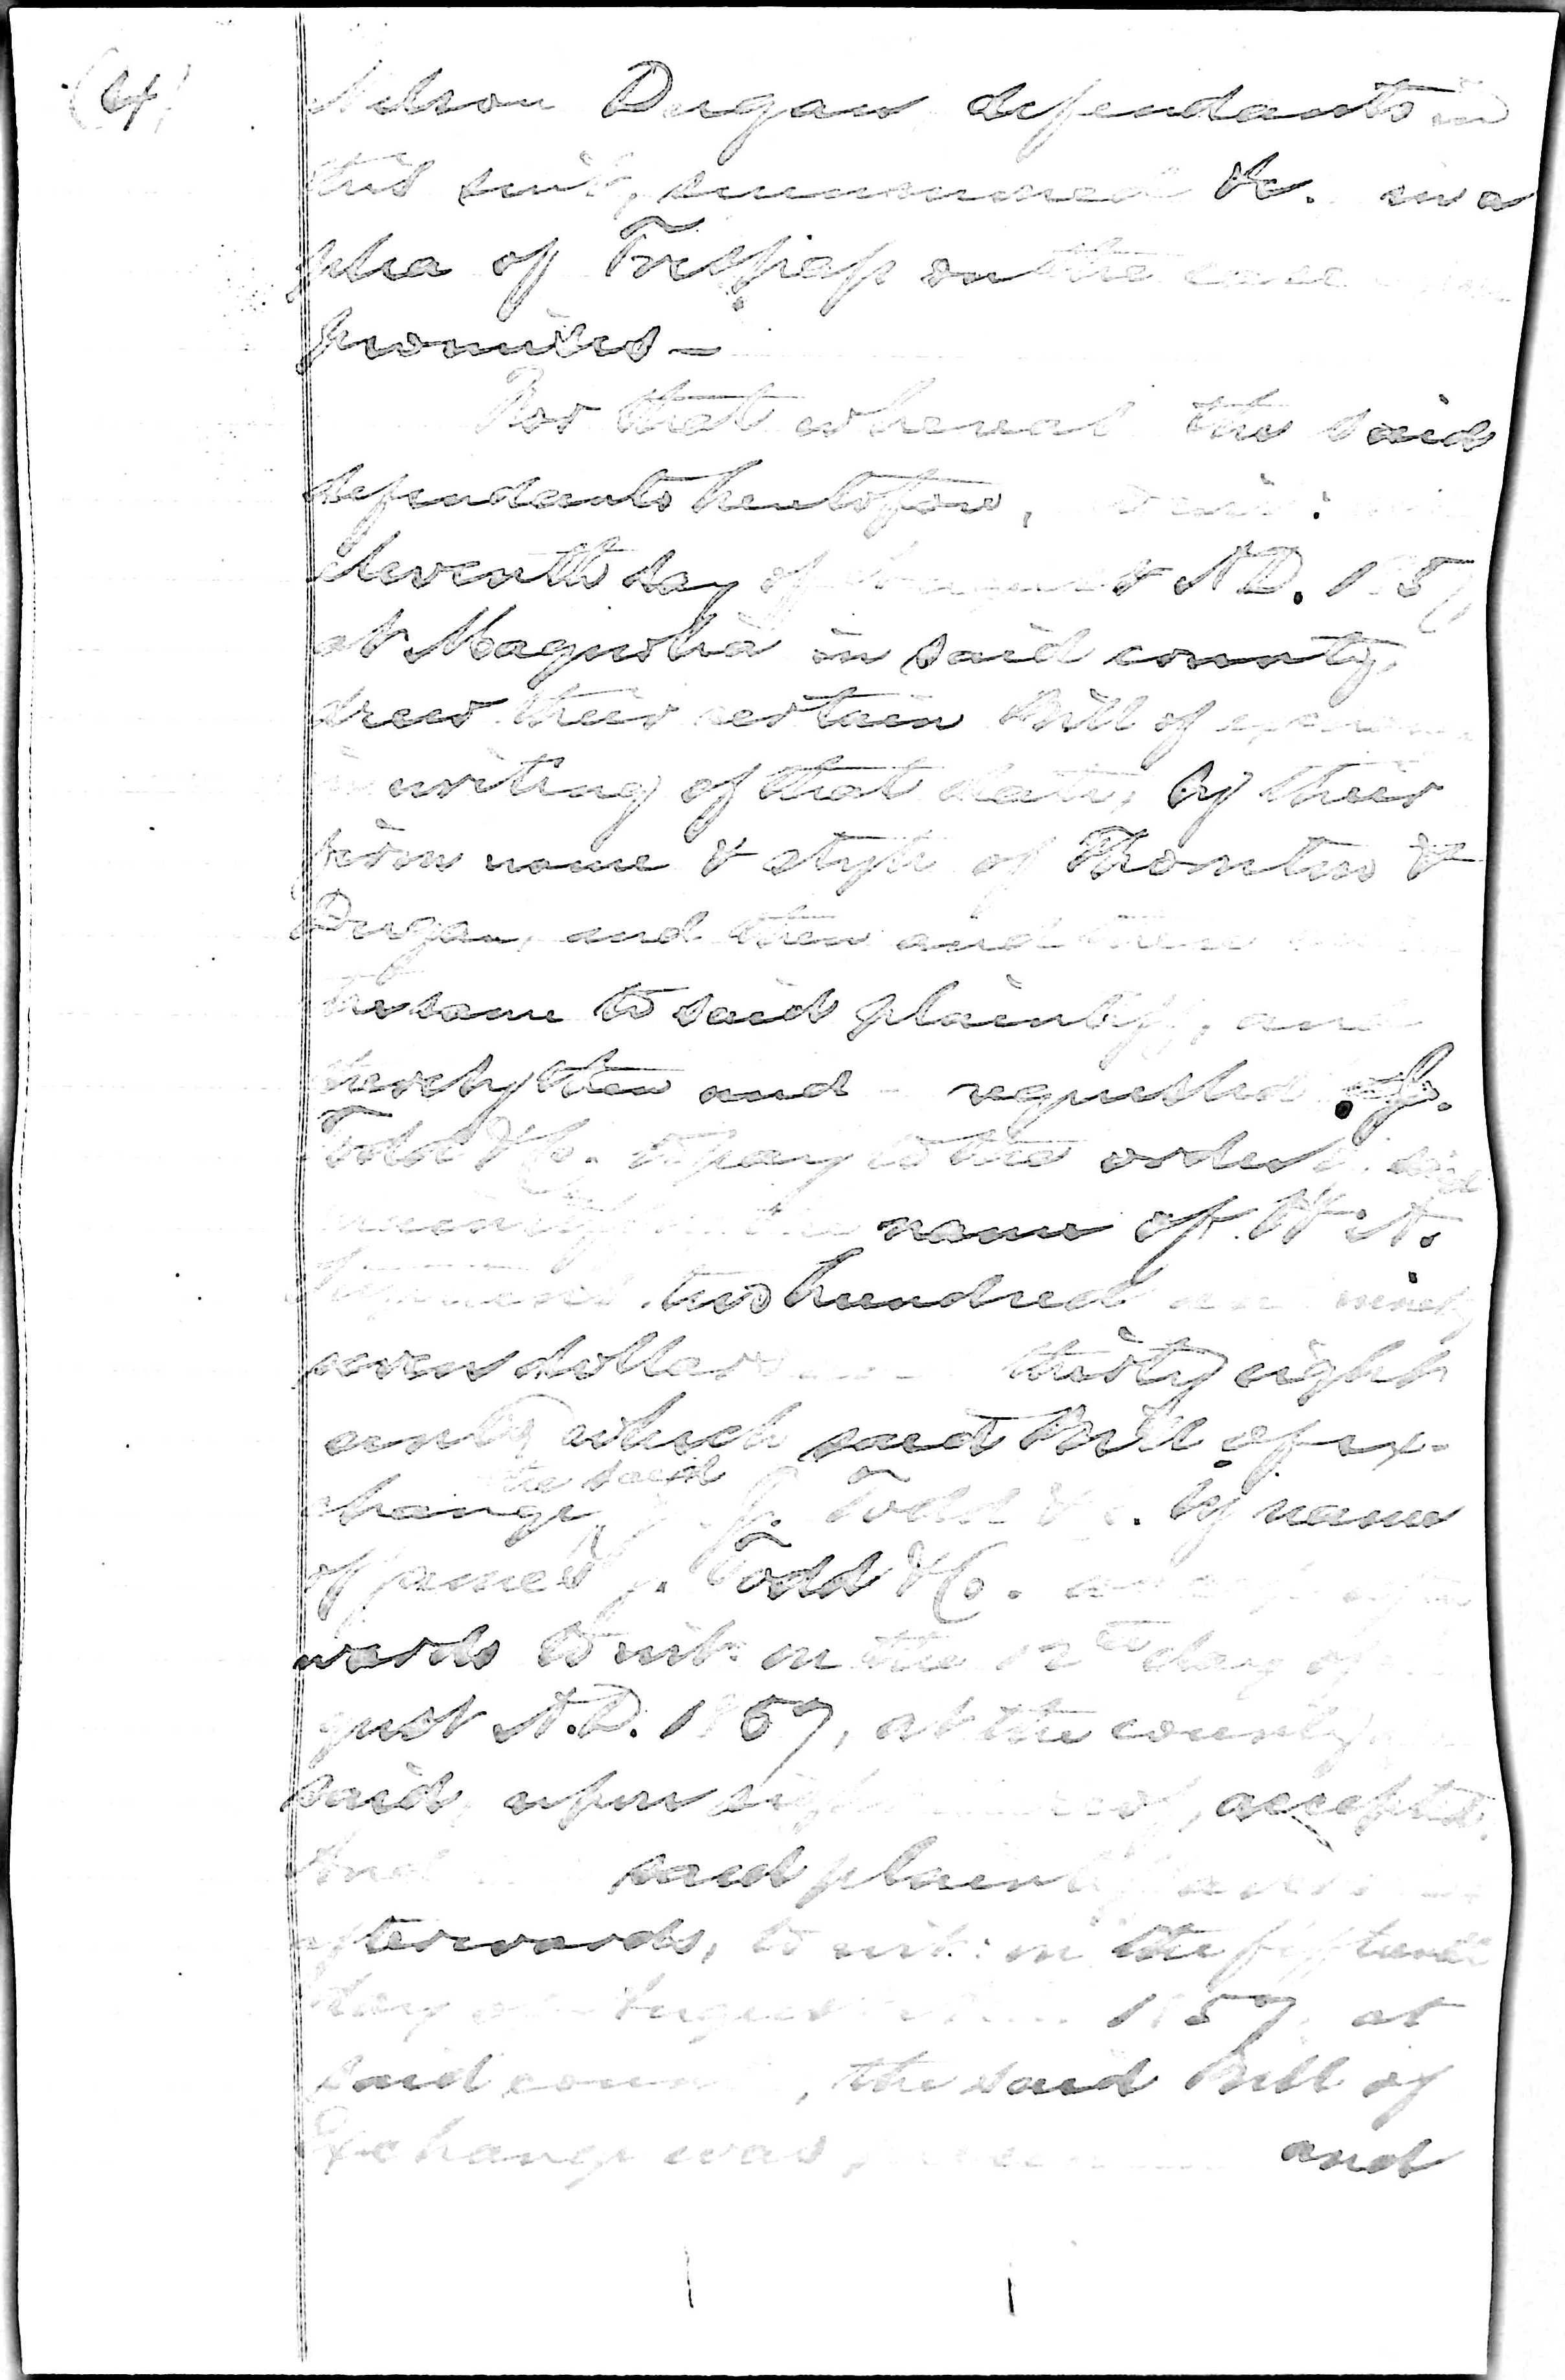 (4)
Nelson Dugan, defendants in
this suit, summoned &c. in a
plea of Trespass on the case
promises —
For that whereas the said
defendants heretofore, to wit:
eleventh day of August A.D. 1857
at Magnolia in said county,
drew their certain Bill of exchange
in writing of that date, by their
firm name & style of Thornton &
Dugan, and then and there
the same to said plaintiff, and
thereby then and requested J.
Todd & Co. to pay to the order of said
name of W. A.
two hundred and ninety
seven dollars thirty eight
cents which said Bill of ex-
change, the said J. J. Todd & Co. by name
of James J. Todd & Co.
wards to wit: on the 12th day of
gust A.D. 1857, at the county
said, upon sight thereof, accepted.
And said plaintiff avers
afterwards, to wit: on the fifteenth
day of August 1857, at
said county, the said Bill of
Exchange was and